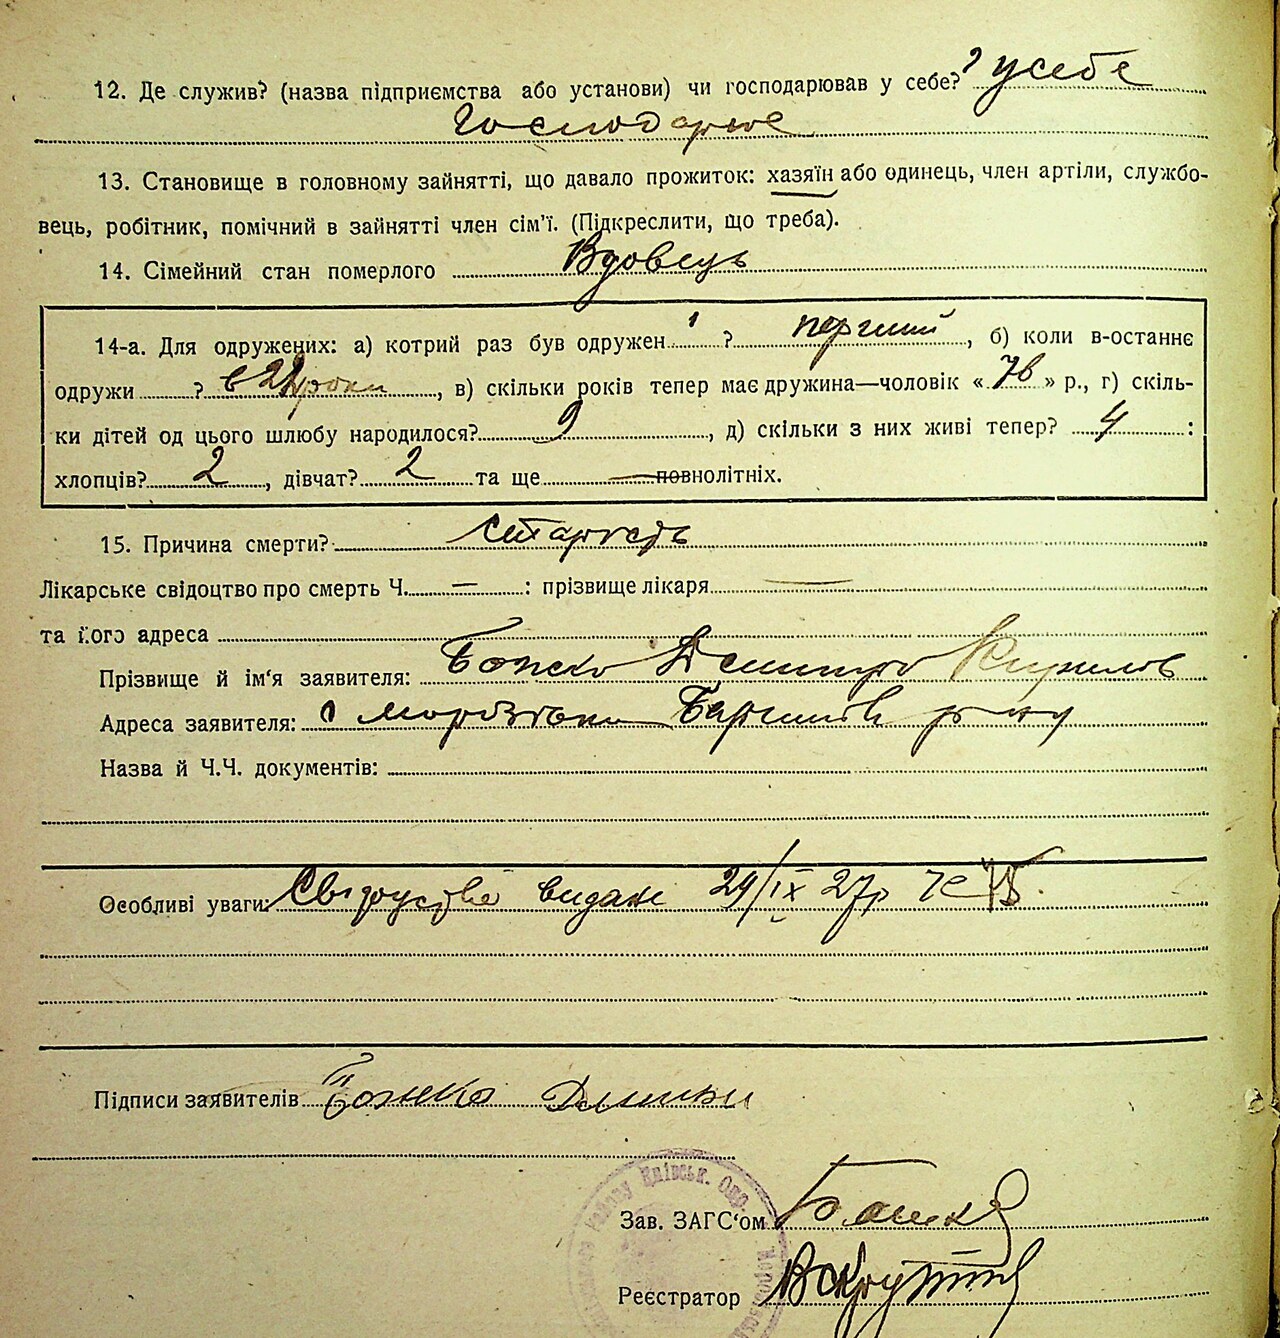 12. Де служив? (назва підприємства або установи) чи господарював у себе? у себе
Господарює
13. Становище в головному зайнятті, що давало прожиток: хазяїн або одинець, член артіли, службо-
вець, робітник, помічний в зайнятті член сім'ї. (Підкреслити, що треба).
14. Сімейний стан померлого Вдовець
14-а. Для одружених: а) котрий раз був одружен 1 ? перший, б) коли в-останнє
одружи ? в 22 роки, в) скільки років тепер має дружина—чоловік « 76 » р., г) скіль-
ки дітей од цього шлюбу народилося? 9, д) скільки з них живі тепер? 4 :
хлопців? 2, дівчат? 2 та ще — повнолітніх.
15. Причина смерти? Старість
Лікарське свідоцтво про смерть Ч. — : прізвище лікаря —
та його адреса
Прізвище й ім'я заявителя: Божко Дмитро Кирилов
Адреса заявителя: Бориспіль р-ну
Назва й Ч.Ч. документів:
Особливі уваги: Свідоцтво видане 29/IX 27р
Підписи заявителів Божко
Київськ. Окр.
Зав. ЗАГС'ом
Реєстратор